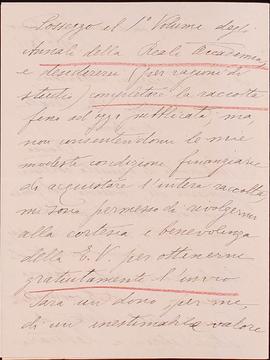 Posseggo el 1° Volume degli
Annali della Reale Accademia
e desidererei (per ragioni di
studio) completare la raccolta
fino ad oggi pubblicata; ma,
non consentendomi le mie
modeste condizioni finanziarie
di acquistare l'intera raccolta
mi sono permesso di rivolgermi
alla cortesia e benevolenza
della E. V. per ottenerne
gratuitamente l'invio
Sarà un dono per me,
di un inestimabile valore